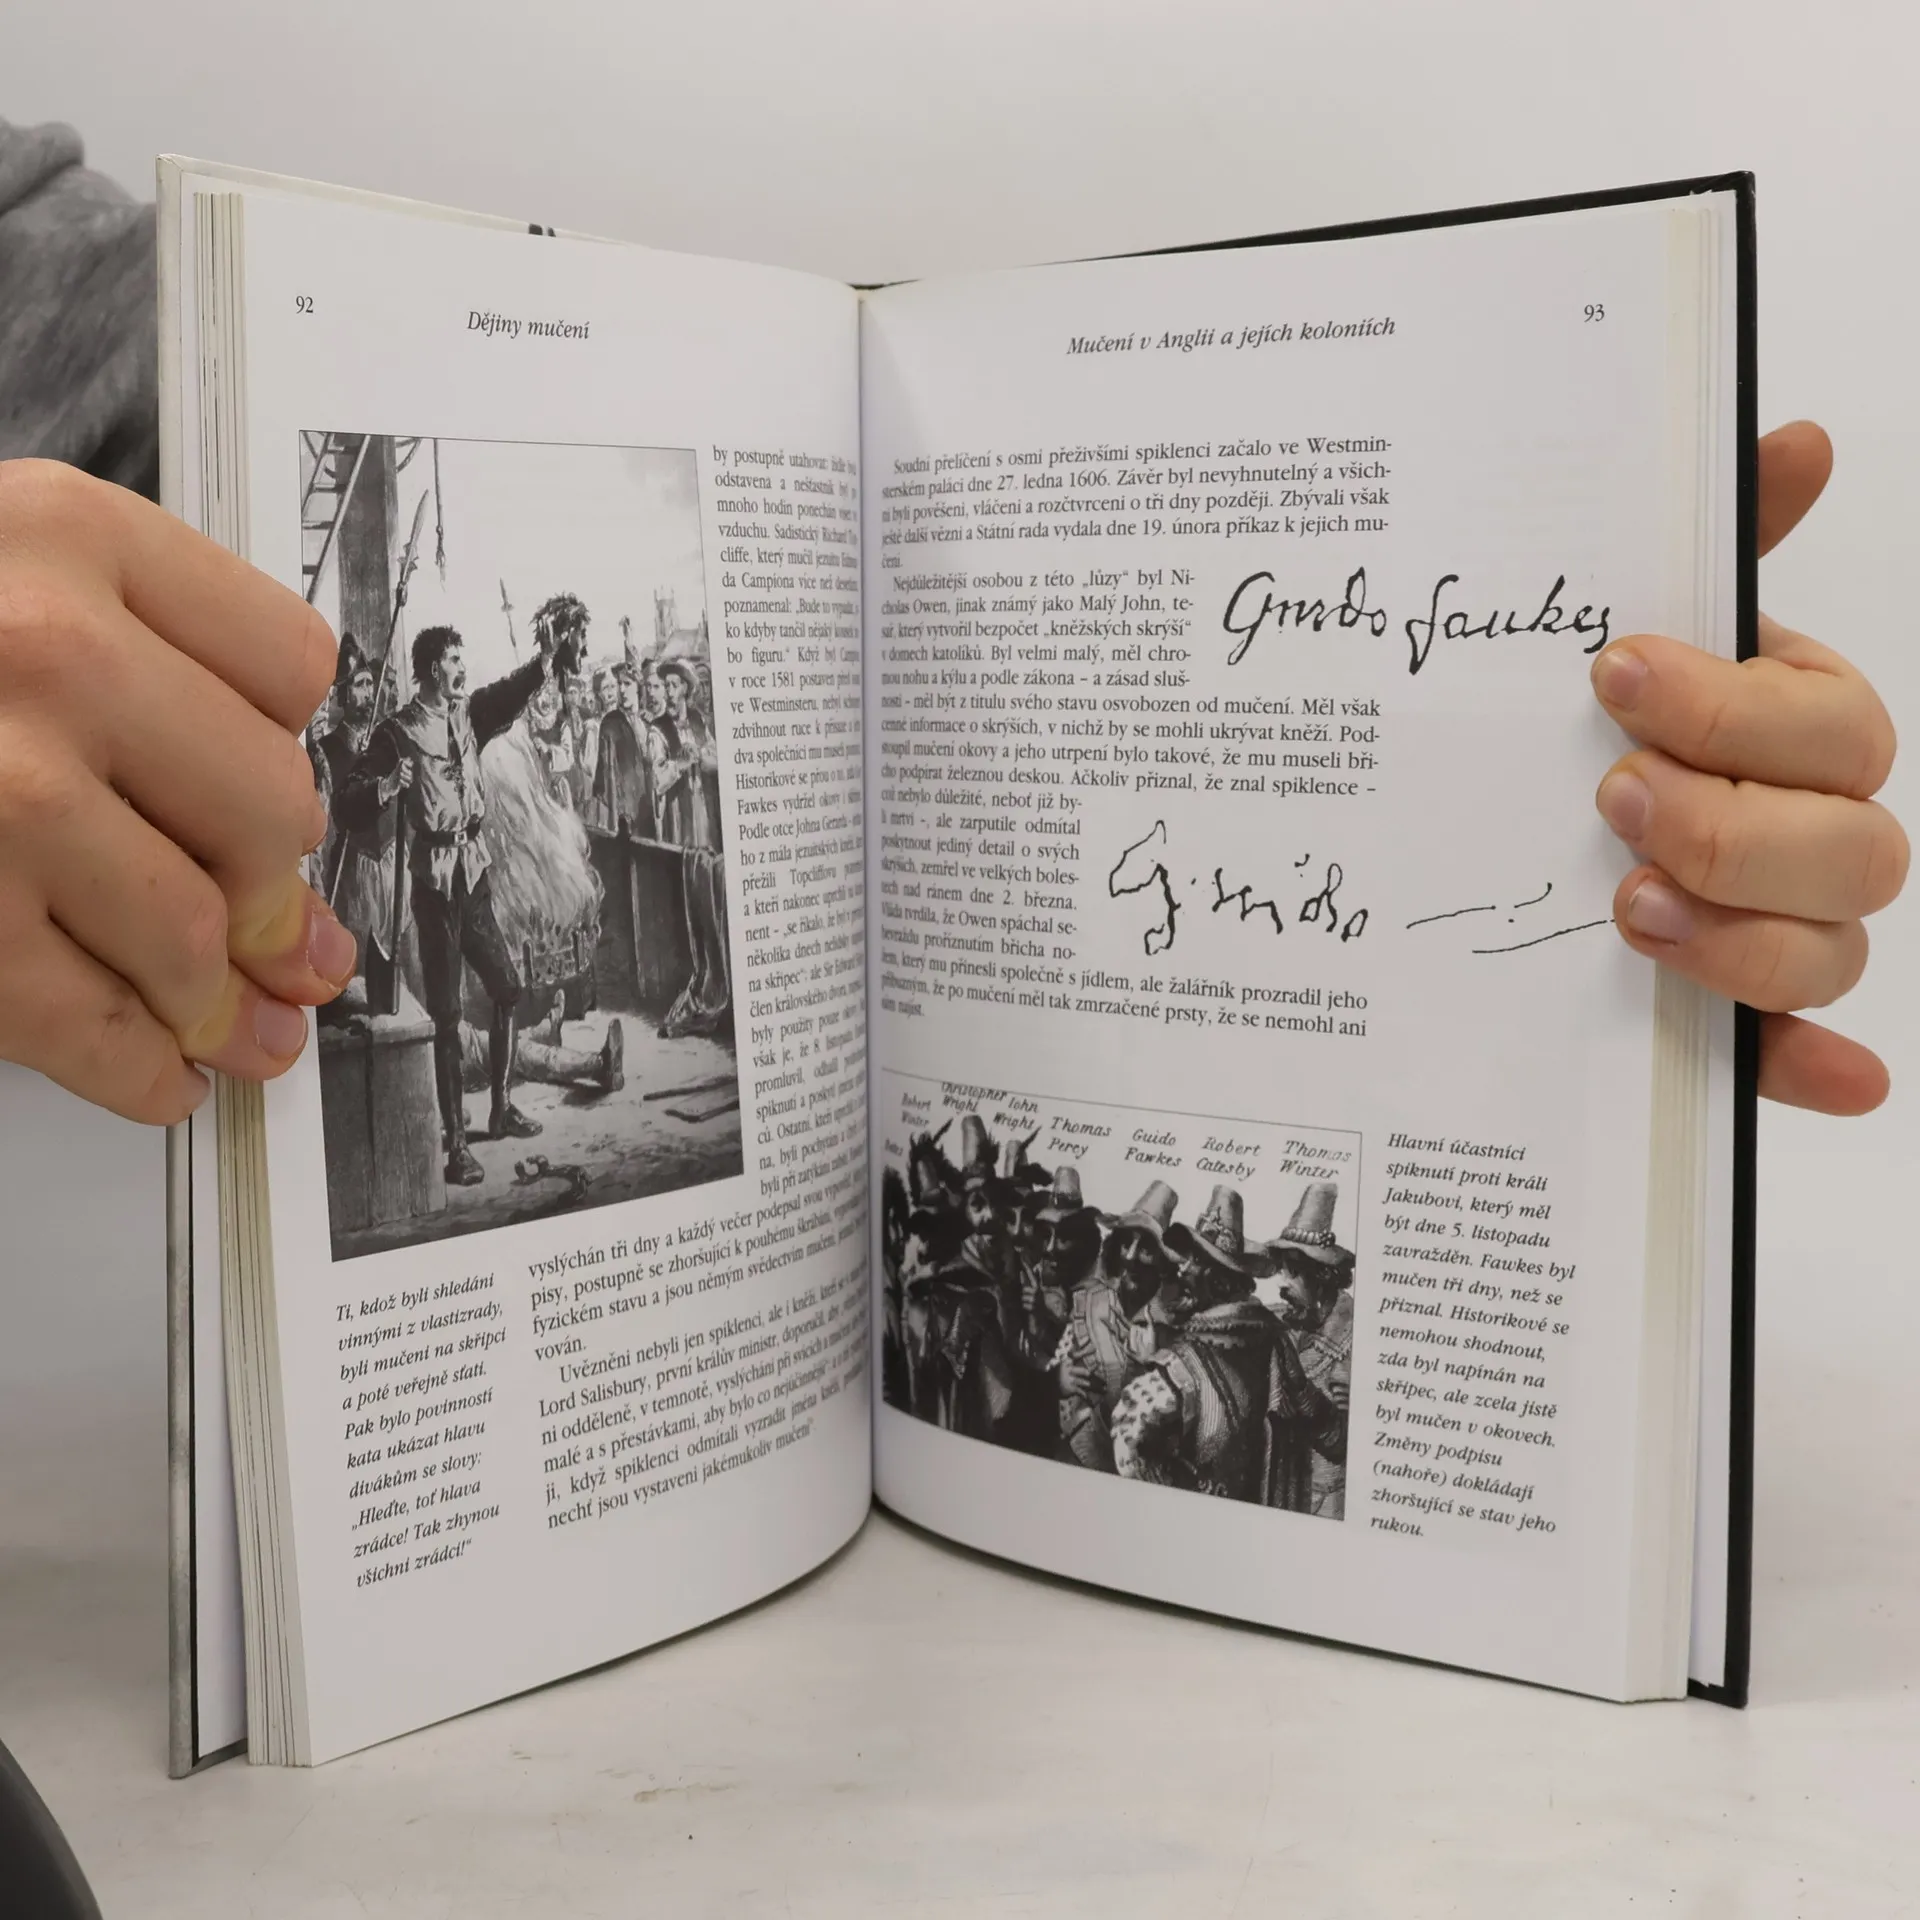 92
Dějiny mučení
by postupně utahovat: židle byla
odstavena a nešťastník byl
mnoho hodin ponechán viset
vzduchu. Sadistický Richard
cliffe, který mučil jezuitu
da Campiona více než
poznamenal: „Bude to
ko kdyby tančil nějaký
bo figuru.“ Když byl
v roce 1581 postaven před
ve Westminsteru, nebyl schopen
zdvihnout ruce k přísaze a
dva společníci mu museli
Historikové se přou o to,
Fawkes vydržel okovy i
Podle otce Johna Gerarda
ho z mála jezuitských kněží,
přežili Topcliffovu
a kteří nakonec uprchli
nent – „se říkalo, že byl v
několika dnech
na skřipec“: ale Sir Edward
člen královského dvora,
byly použity pouze
však je, že 8. listopadu
promluvil, odhalil
spiknutí a poskytl
ců. Ostatní, kteří uprchli
na, byli pochytáni a
byli při zatýkání zabiti.
vyslýchán tři dny a každý večer podepsal svou výpověď.
pisy, postupně se zhoršující k pouhému škrábání,
fyzickém stavu a jsou němým svědectvím mučení,
vován.
Uvězněni nebyli jen spiklenci, ale i kněží, kteří se
Lord Salisbury, první králův ministr, doporučil, aby
ni odděleně, v temnotě, vyslýcháni při svících a mučení
malé a s přestávkami, aby bylo co nejúčinnější“: a
ji, když spiklenci odmítali vyzradit jména kněží,
nechť jsou vystaveni jakémukoliv mučení“.
Ti, kdož byli shledáni
vinnými z vlastizrady,
byli mučeni na skřipci
a poté veřejně sťati.
Pak bylo povinností
kata ukázat hlavu
divákům se slovy:
„Hleďte, toť hlava
zrádce! Tak zhynou
všichni zrádci!“
93
Mučení v Anglii a jejích koloniích
Soudní přelíčení s osmi přeživšími spiklenci začalo ve Westmin-
sterském paláci dne 27. ledna 1606. Závěr byl nevyhnutelný a všich-
ni byli pověšeni, vláčeni a rozčtvrceni o tři dny později. Zbývali však
ještě další vězni a Státní rada vydala dne 19. února příkaz k jejich mu-
čení.
Nejdůležitější osobou z této „lůzy“ byl Ni-
cholas Owen, jinak známý jako Malý John, te-
sař, který vytvořil bezpočet „kněžských skrýší“
v domech katolíků. Byl velmi malý, měl chro-
mou nohu a kýlu a podle zákona – a zásad sluš-
nosti – měl být z titulu svého stavu osvobozen od mučení. Měl však
cenné informace o skrýších, v nichž by se mohli ukrývat kněží. Pod-
stoupil mučení okovy a jeho utrpení bylo takové, že mu museli bři-
cho podpírat železnou deskou. Ačkoliv přiznal, že znal spiklence –
což nebylo důležité, neboť již by-
li mrtví –, ale zarputile odmítal
poskytnout jediný detail o svých
skrýších, zemřel ve velkých boles-
tech nad ránem dne 2. března.
Vláda tvrdila, že Owen spáchal se-
bevraždu proříznutím břicha no-
žem, který mu přinesli společně s jídlem, ale žalářník prozradil jeho
příbuzným, že po mučení měl tak zmrzačené prsty, že se nemohl ani
sám najíst.
Guido fawkes
Guido
Robert Winter
Christopher Wright
Iohn Wright
Thomas Percy
Guido Fawkes
Robert Catesby
Thomas Winter
Hlavní účastníci
spiknutí proti králi
Jakubovi, který měl
být dne 5. listopadu
zavražděn. Fawkes byl
mučen tři dny, než se
přiznal. Historikové se
nemohou shodnout,
zda byl napínán na
skřipec, ale zcela jistě
byl mučen v okovech.
Změny podpisu
(nahoře) dokládají
zhoršující se stav jeho
rukou.